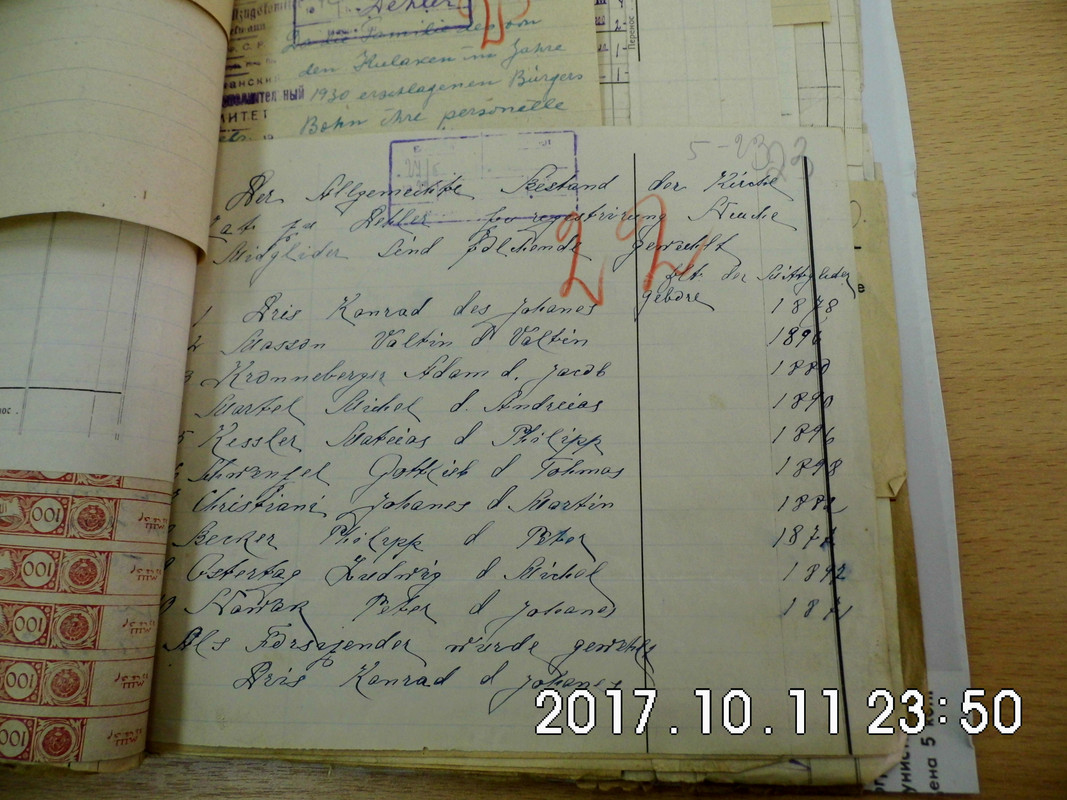 Dehler
Da die Familie des von
den Kulaken im Jahre
1930 erschlagenen Bürgers
Bohn ihre personelle
анский
ный
МИТЕТ
Перенос
Der Allgemeine Bestand der Kirche
Rat zu Dehler for registrirung Neuche
Mitglider sind folchende gewehlt
22
alt der Mittglieder
gebore
1 Dris Konrad des Johanes 1878
2 Masson Valtin d Valtin 1896
3 Kronneberger Adam d. Jacob 1880
Martel Michel d. Andreias 1890
5 Kessler Mateias d Philipp 1896
6 Schwenzel Gottlieb d Tohmas 1898
Christiani Johanes d Martin 1882
Becker Philipp d Peter 187
Ostertag Ludwig d Michel 1892
Nowak Peter d Johanes 1871
Als Forsizender wurde gewehlt
Dris Konrad d Johanes
100
100
100
100
100
2017.10.11 23:50